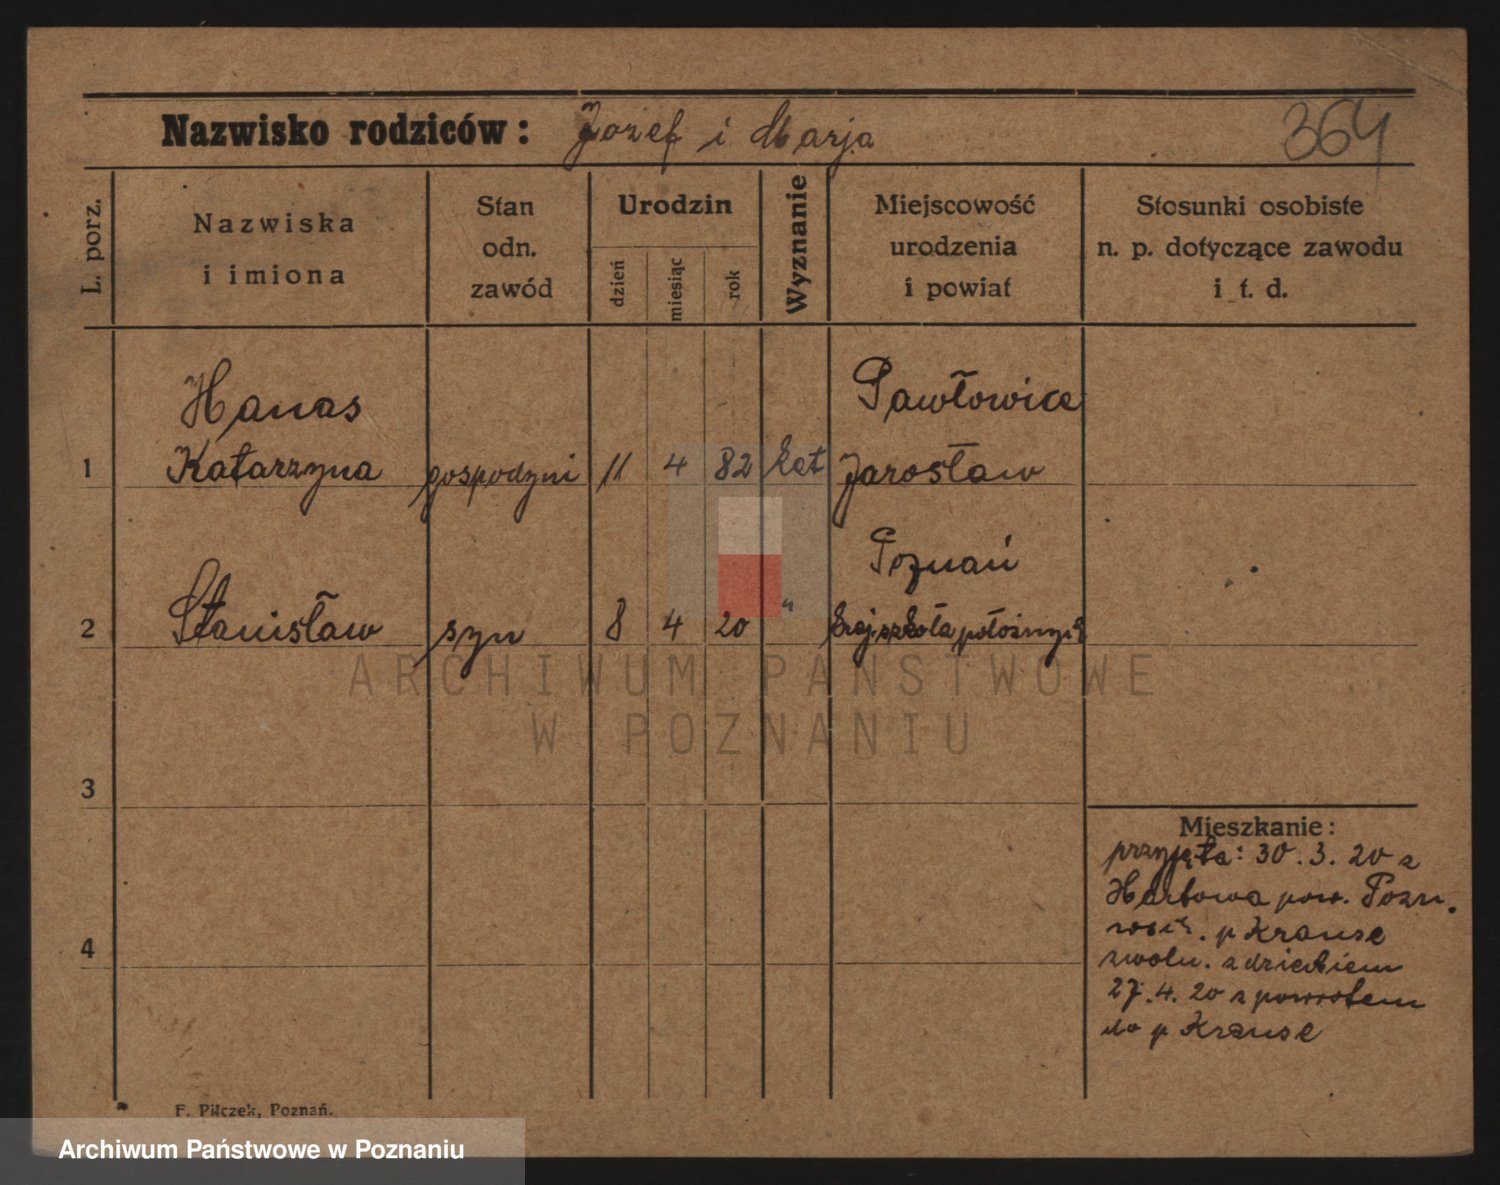 Nazwisko rodziców: Jozef i Marja
364
L. porz.
Nazwiska i imiona
Stan odn. zawód
Urodzin
dzień
miesiąc
rok
Wyznanie
Miejscowość urodzenia i powiat
Stosunki osobiste n. p. dotyczące zawodu i t. d.
Hanas Pawłowice
1 Katarzyna gospodyni 11 4 82 kat Jarosław
Poznań
2 Stanisław syn 8 4 20 " kraj. szkoła położnych
3
Mieszkanie:
przyjęta: 30. 3. 20 z
pow. Pozn.
p Krause
zwoln. z dzieckiem
4
27. 4. 20 z powrotem
do p Krause
F. Pilczek, Poznań.
ARCHIWUM PAŃSTWOWE
W POZNANIU
Archiwum Państwowe w Poznaniu